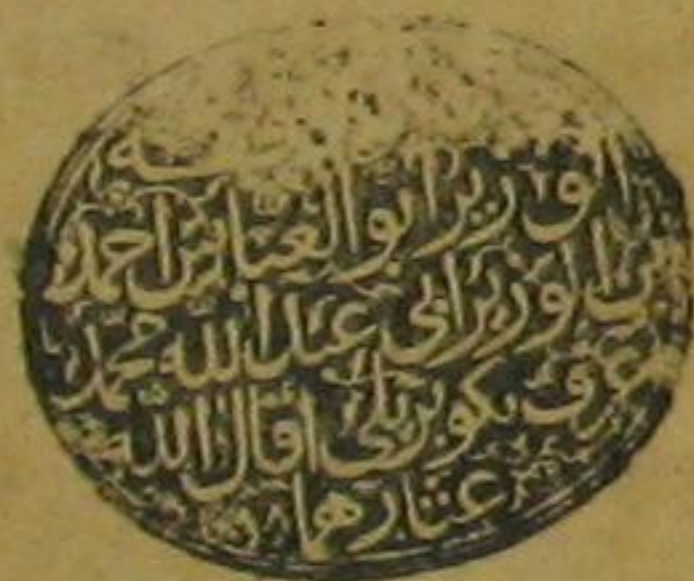 الوزير ابو العباس احمد
بن الوزير ابي عبد الله محمد
عرف بكوبريلي اقال الله
عثارهما